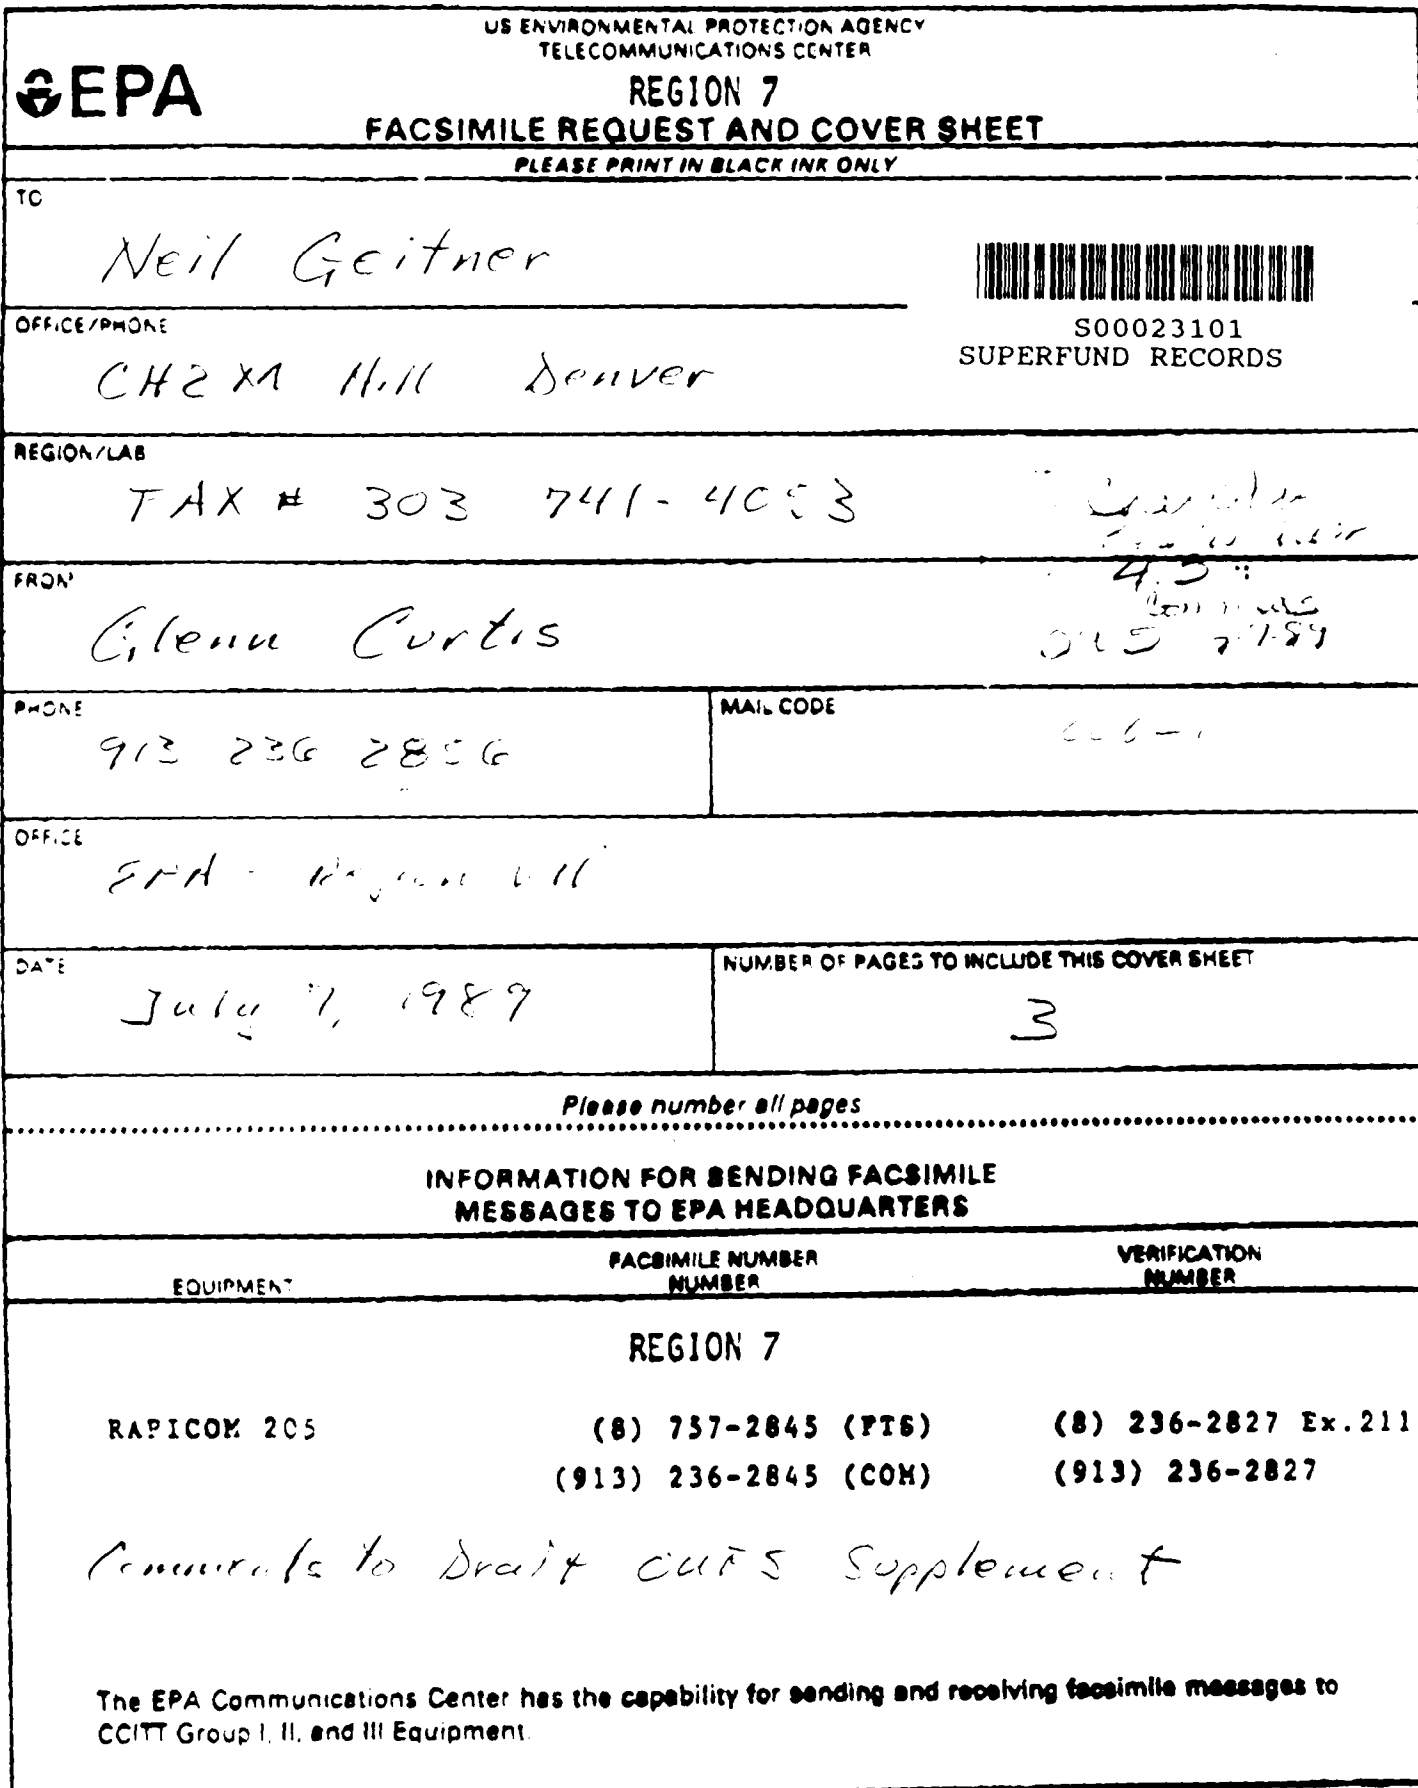 US ENVIRONMENTAL PROTECTION AGENCY
TELECOMMUNICATIONS CENTER
EPA
REGION 7
FACSIMILE REQUEST AND COVER SHEET
PLEASE PRINT IN BLACK INK ONLY
TO
Neil Geitner
S00023101
SUPERFUND RECORDS
OFFICE/PHONE
CH2M Hill Denver
REGION/LAB
FAX # 303 741-
FROM
Glenn Curtis
PHONE
913 236 2856
MAIL CODE
OFFICE
EPA - Region VII
DATE
July 7, 1989
NUMBER OF PAGES TO INCLUDE THIS COVER SHEET
3
Please number all pages
INFORMATION FOR SENDING FACSIMILE
MESSAGES TO EPA HEADQUARTERS
EQUIPMENT
FACSIMILE NUMBER
NUMBER
VERIFICATION
NUMBER
REGION 7
RAPICOM 205
(8) 757-2845 (FTS)
(8) 236-2827 Ex.211
(913) 236-2845 (COM)
(913) 236-2827
Comments to Draft OUFS Supplement
The EPA Communications Center has the capability for sending and receiving facsimile messages to
CCITT Group I, II, and III Equipment.